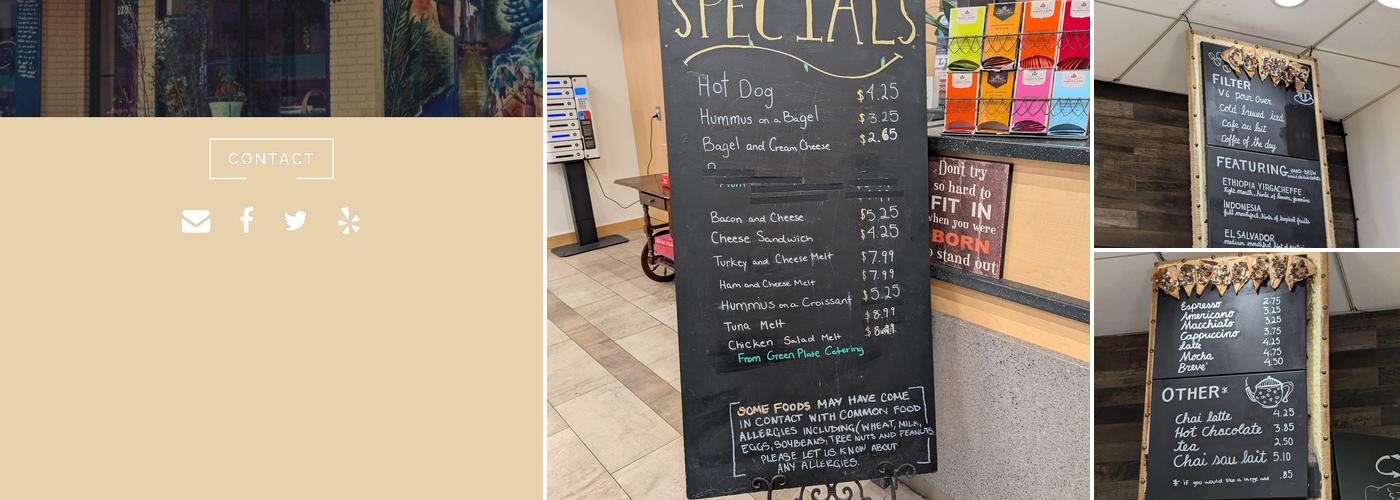 CONTACT
SPECIALS
Hot Dog $4.25
Hummus on a Bagel $3.25
Bagel and Cream Cheese $2.65
Bacon and Cheese $5.25
Cheese Sandwich $4.25
Turkey and Cheese Melt $7.99
Ham and Cheese Melt $7.99
Hummus on a Croissant $5.25
Tuna Melt $8.99
Chicken Salad Melt
From Green Plate Catering
SOME FOODS MAY HAVE COME
IN CONTACT WITH COMMON FOOD
ALLERGIES INCLUDING (WHEAT, MILK,
EGGS, SOYBEANS, TREE NUTS AND PEANUTS
PLEASE LET US KNOW ABOUT
ANY ALLERGIES.
Don't try
so hard to
FIT IN
when you were
BORN
to stand out
COFFEE
FILTER
V6 pour over
Cold brewed iced
Cafe au lait
Coffee of the day
FEATURING
ETHIOPIA YIRGACHEFFE
INDONESIA
EL SALVADOR
Espresso 2.75
Americano 3.25
Macchiato 3.25
Cappuccino 3.75
Latte 4.25
Mocha 4.75
Breve' 4.50
OTHER*
Chai latte 4.25
Hot Chocolate 3.85
tea 2.50
Chai sau lait 5.10
* if you would like a large add .85